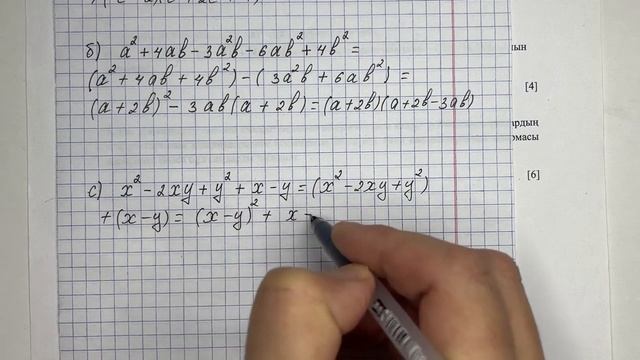 б) a² + 4ab - 3a²b - 6ab² + 4b² =
(a² + 4ab + 4b²) - (3a²b + 6ab²) =
(a + 2b)² - 3ab(a + 2b) = (a + 2b)(a + 2b - 3ab)
c) x² - 2xy + y² + x - y = (x² - 2xy + y²)
+ (x - y) = (x - y)² + x -
[4]
[6]